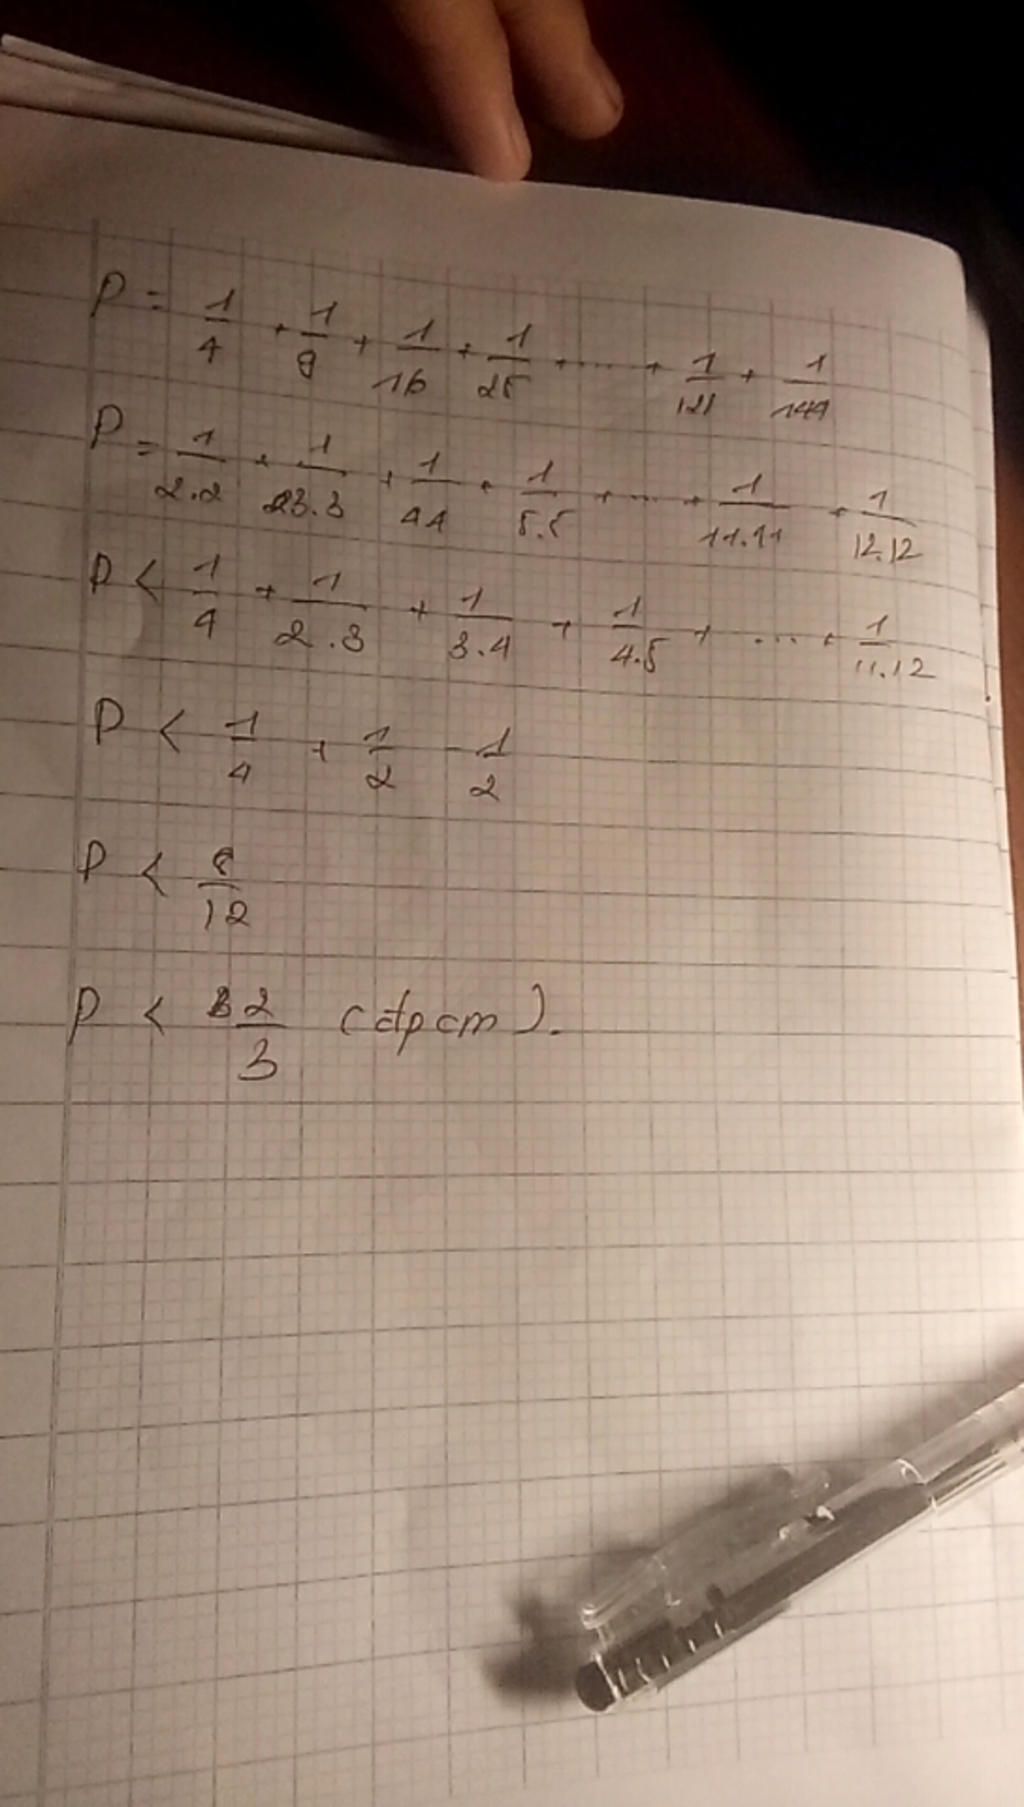 P = 1/4 + 1/9 + 1/16 + 1/25 + .... + 1/121 + 1/144
P = 1/2.2 + 1/3.3 + 1/4.4 + 1/5.5 + ... + 1/11.11 + 1/12.12
P < 1/4 + 1/2.3 + 1/3.4 + 1/4.5 + .... + 1/11.12
P < 1/4 + 1/2 - 1/2
P < 8/12
P < 2/3 (đpcm).